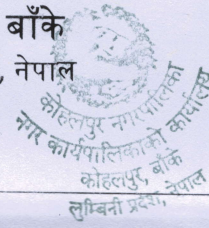 बाँके
, नेपाल
कोहलपुर नगरपालिका
नगर कार्यपालिकाको कार्यालय
कोहलपुर, बाँके
लुम्बिनी प्रदेश, नेपाल